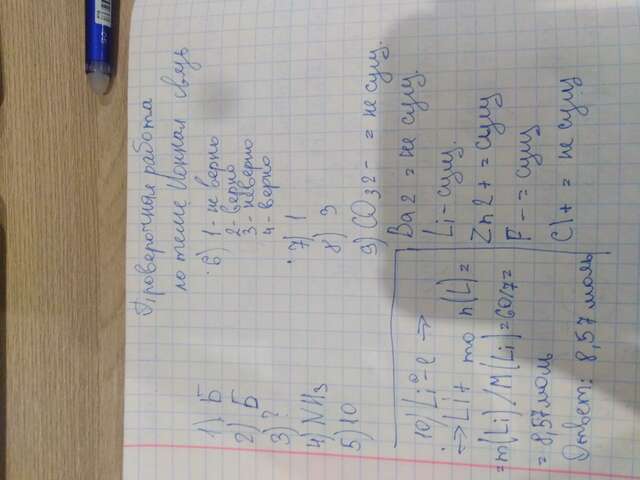 Проверочная работа
по теме Ионная связь
1) Б
2) Б
3) ?
4) NH3
5) 10
6) 1 - не верно
2 - верно
3 - неверно
4 - верно
7) 1
8) 3
9) CO3 2- = не сущ.
Ba2 = не сущ.
Li - сущ.
Zn2+ = сущ
F- = сущ
Cl+ = не сущ
10) Li⁰ - e →
→ Li+ то n(L) =
= m(Li)/M(Li) = 60/7 =
= 8,57 моль
Ответ: 8,57 моль